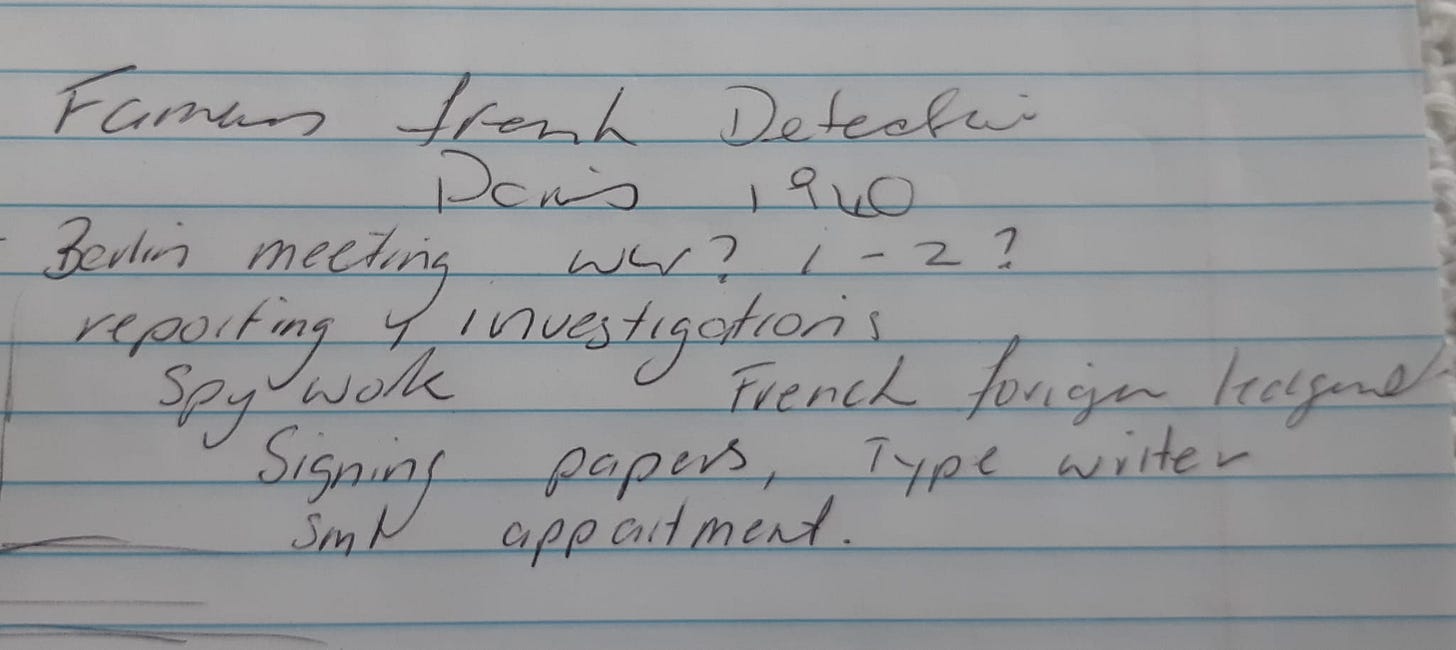 Famous french Detective
Paris 1940
Berlin meeting WW? 1-2?
reporting & investigations
Spy work French foriegn
Signing papers, Type writer
appartment.